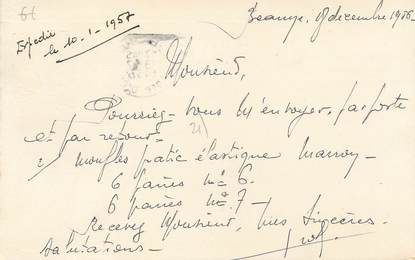 61
Expédié
le 10-1-1957
8 décembre 1956-
Monsieur,
Pourriez-vous m'envoyer, par poste
et par retour
21
2) moufles élastique
6 paires nº 6.
6 paires nº 7-
Recevez Monsieur, mes sincères
salutations-